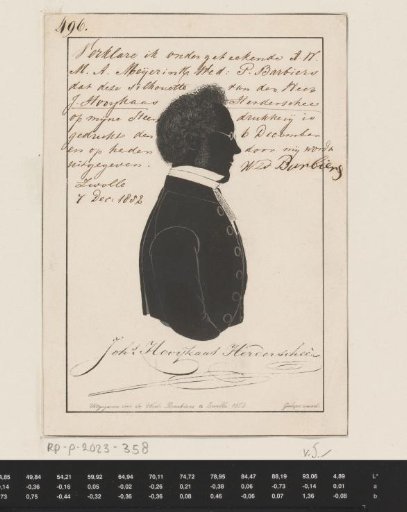 496.
Verklare ik ondergeteekende J. H
M. A. Meyerink Wed: P. Barbiers
dat deze silhouette van den Heer
J. Hooykaas Herderschee
op mijne Steendrukkerij is
gedrukt den 6 December
en op heden door mij wordt
uitgegeven. Wed Barbiers
Zwolle
7 Dec. 1852
Joh.s Hooykaas Herderschêe
Uitgegeven van de Wed. Barbiers te Zwolle 1852
RP-P-2023-358
v.S.
49,84 54,21 59,92 64,94 70,11 74,72 78,95 84,47 89,19 93,06 4,89 L*
-0,36 -0.16 0.05 -0.02 -0.26 0.21 -0.38 0.06 -0.73 -0.14 0.01 a
0,75 -0.44 -0.32 -0.36 -0.36 0.08 0.46 -0.06 0.07 1,36 -0.08 b